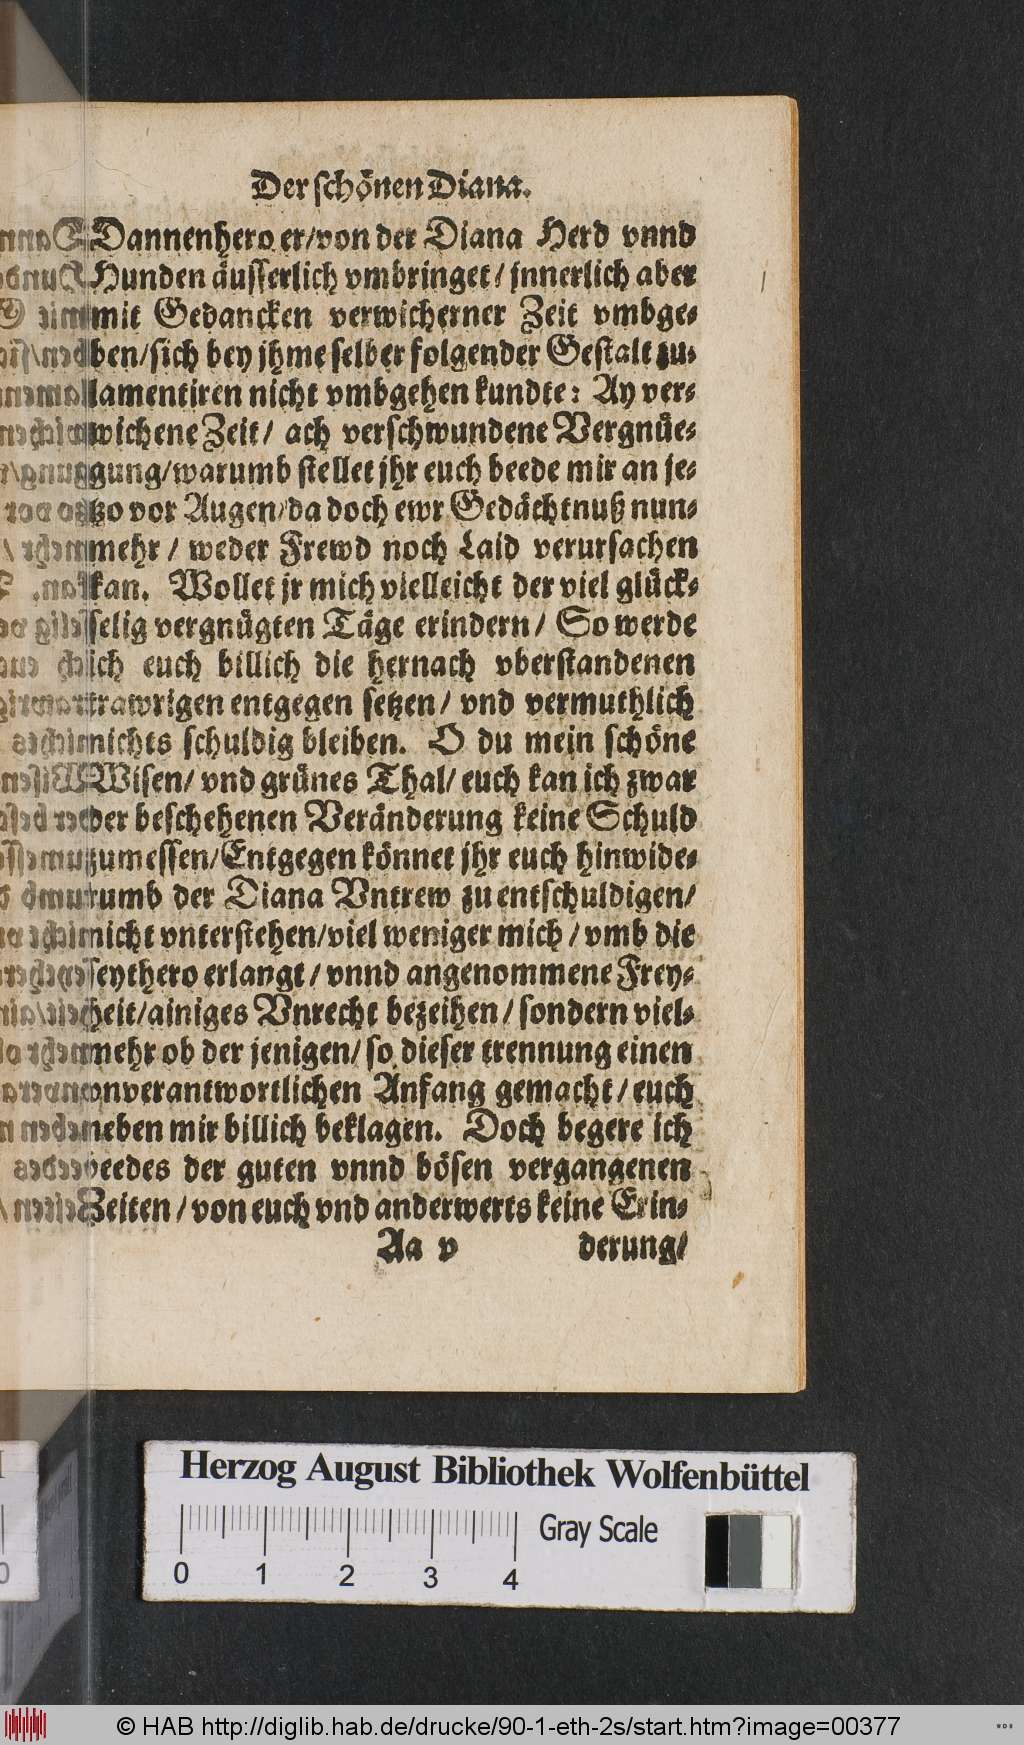 Der schönen Diana.
Dannenhero er/von der Diana Herd vnnd
Hunden äusserlich vmbringet/ jnnerlich aber
mit Gedancken verwicherner Zeit vmbge-
ben/sich bey jhme selber folgender Gestalt zu-
lamentiren nicht vmbgehen kundte: Ay ver-
wichene Zeit/ ach verschwundene Vergnüe-
gung/warumb stellet jhr euch beede mir an je-
tzo vor Augen/da doch ewr Gedächtnuß nun-
mehr/ weder Frewd noch Laid verursachen
kan. Wollet jr mich vielleicht der viel glück-
selig vergnügten Täge erindern/ So werde
ich euch billich die hernach vberstandenen
trawrigen entgegen setzen/ vnd vermuthlich
nichts schuldig bleiben. O du mein schöne
Wisen/ vnd grünes Thal/ euch kan ich zwar
der beschehenen Veränderung keine Schuld
zumessen/Entgegen könnet jhr euch hinwide-
rumb der Diana Vntrew zu entschuldigen/
nicht vnterstehen/viel weniger mich/ vmb die
seythero erlangt/ vnnd angenommene Frey-
heit/ainiges Vnrecht bezeihen/ sondern viel-
mehr ob der jenigen/ so dieser trennung einen
vnverantwortlichen Anfang gemacht/ euch
neben mir billich beklagen. Doch begere ich
beedes der guten vnnd bösen vergangenen
Zeiten/ von euch vnd anderwerts keine Erin-
Aa v derung/
Herzog August Bibliothek Wolfenbüttel
Gray Scale
0 1 2 3 4
© HAB http://diglib.hab.de/drucke/90-1-eth-2s/start.htm?image=00377